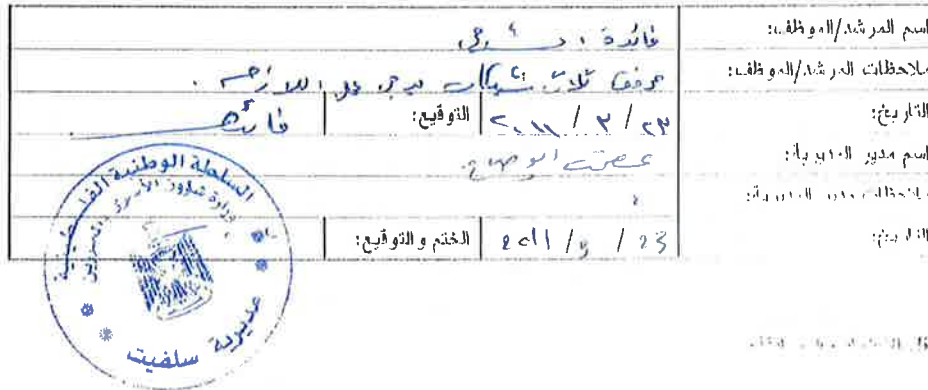 اسم المرشد/الموظف: فائدة
ملاحظات المرشد/الموظف: مرفق ثلاث شيكات يرجى عمل اللازم .
التاريخ: ٢٣ / ٣ / ٢٠١١ التوقيع:
اسم مدير المديرية: عصمت ابو صاع
ملاحظات مدير المديرية:
التاريخ: 23 / 3 / 2011 الختم والتوقيع:
السلطة الوطنية الفلسطينية
وزارة شؤون الأسرى والمحررين
مديرية سلفيت